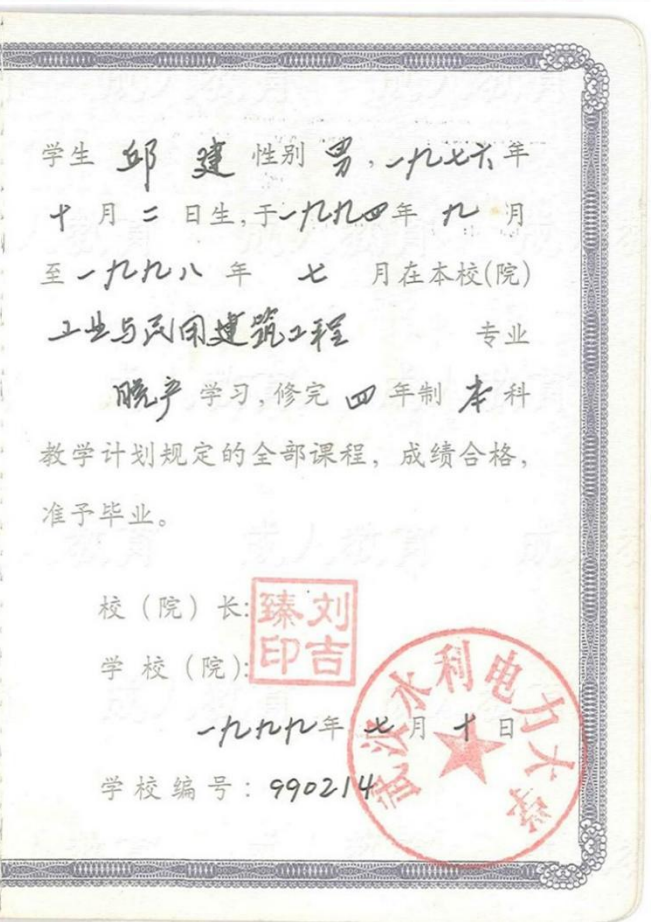 学生 邱建 性别 男，一九七六年
十月二日生，于一九九四年 九 月
至一九九八 年 七 月在本校(院)
工业与民用建筑工程 专业
脱产 学习，修完 四 年制 本 科
教学计划规定的全部课程，成绩合格，
准予毕业。
校（院）长：
刘吉臻印
学 校（院）：
武汉水利电力大学
一九九九年 七 月 十 日
学校编号：990214
成人教育